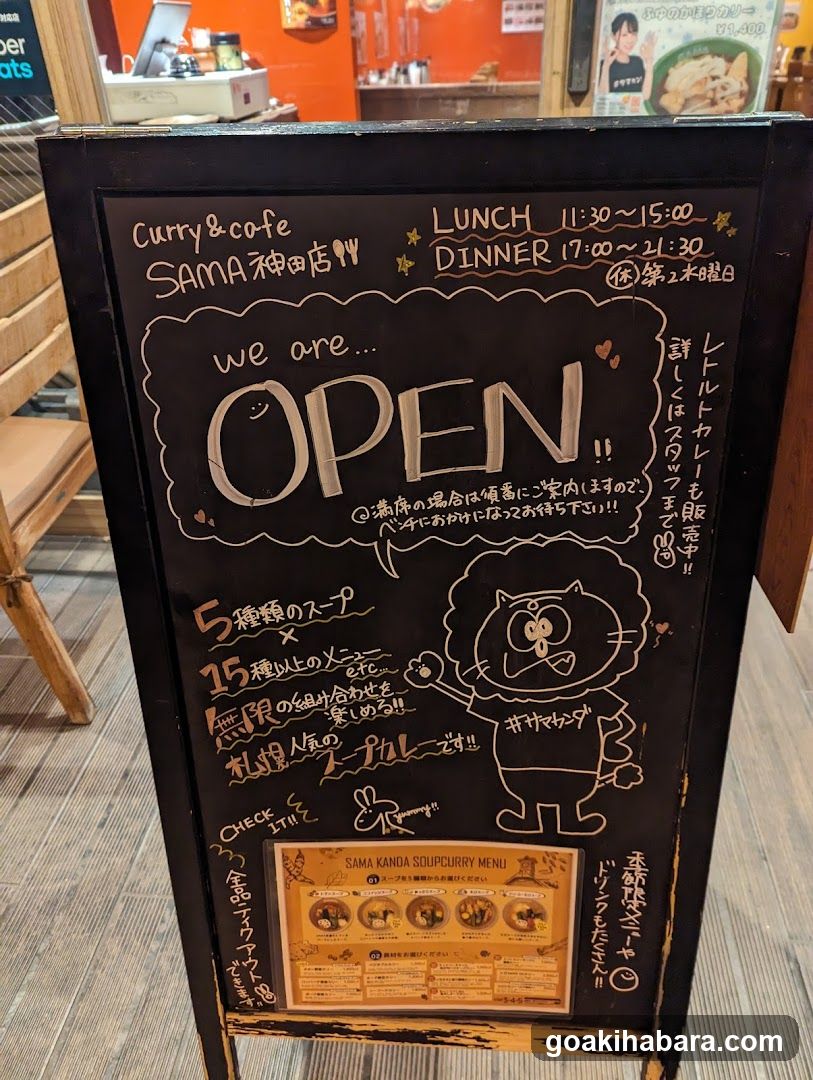 ber
ats
ふゆのかほりカリー
¥1,400
curry & cafe
SAMA 神田店
LUNCH 11:30～15:00
DINNER 17:00～21:30
㊡第2水曜日
we are...
OPEN!!
@満席の場合は順番にご案内しますので、
ベンチにおかけになってお待ち下さい!!
レトルトカレーも販売中!!
詳しくはスタッフまで
5種類のスープ
×
15種以上のメニュー
etc...
無限の組み合わせを
楽しめる!!
札幌人気のスープカレーです!!
#サマカンダ
CHECK
IT!!
yummy!!
全品テイクアウト
できます!!
SAMA KANDA SOUPCURRY MENU
01 スープを5種類からお選びください
02 具材をお選びください
季節限定メニューや
ドリンクもたくさん!!
goakihabara.com